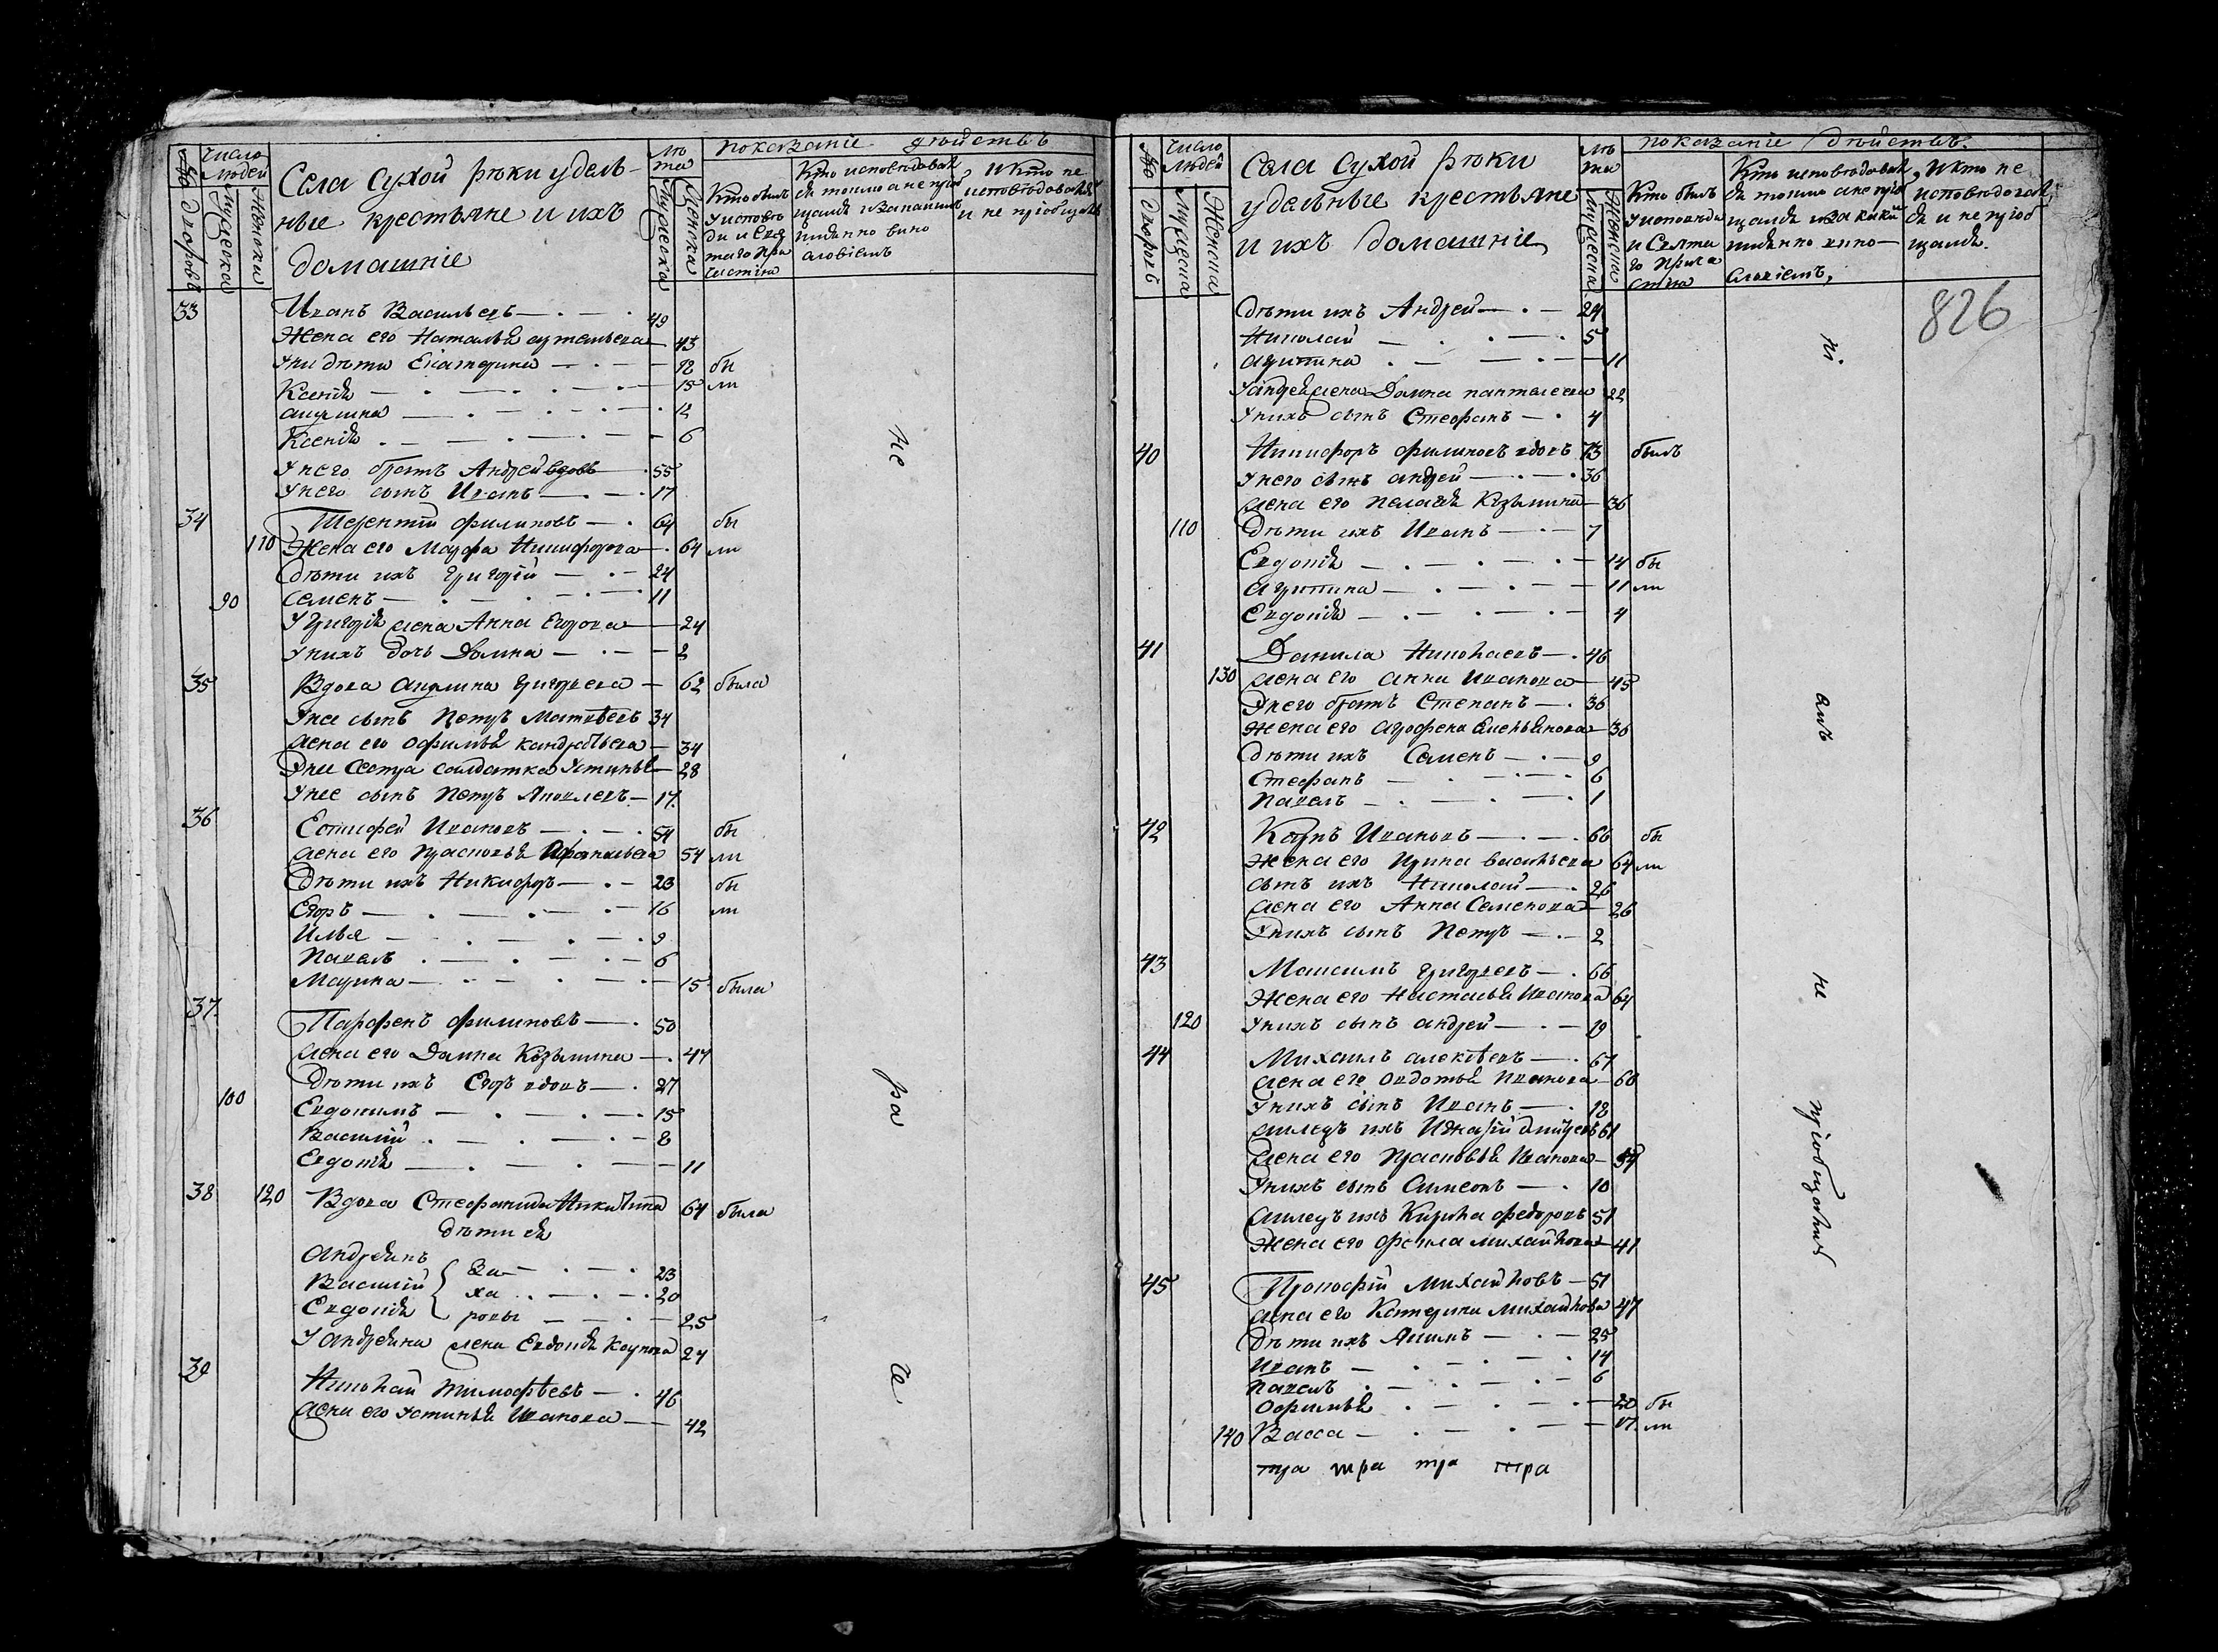 № дворовъ
число людей
мужеска
женска
Села Сухой рѣки удель-
ные крестьяне и ихъ
домашніе
лѣта
мужеска
женска
показаніе дѣйствъ
Кто былъ
у исповѣ
ди и Свя
таго При
частія
Кто исповѣдовал
ся токмо а не пріоб
щался
и не пріобщался
33
Иванъ Васильевъ 49
Жена его Наталья 43
У них дѣти Екатерина бы
Ксенія 15 ли
акулина 12
Ксенія 6
У него братъ Андрей вдовъ 55
У него сынъ Иванъ 17
34
Терентій филиповъ 64 бы
110 Жена его Марфа Никифорова 64 ли
Дѣти ихъ григорій 24
90 Семенъ 11
У Григорія жена Анна Егорова 24
У нихъ дочь Домна 2
35
Вдова акулина григорьева 62 была
У нея сынъ Петръ Матвѣевъ 34
жена его офимья кандратьева 34
У нее Сестра солдатка Устинья 28
У нее сынъ Петръ Яковлевъ 17
36
Евтифей Ивановъ 54 бы
жена его Прасковья Афанасьева 54 ли
Дѣти ихъ Никифоръ 23 бы
Егоръ 16 ли
Илья 9
Павелъ 6
Марина 15 была
37
Парфенъ филиповъ 50
жена его Домна Козьмина 47
Дѣти ихъ Егоръ вдовъ 27
100 Евдокимъ 15
Василій 8
Евдокія 11
38
120 Вдова Стефанида Никитина 64 была
дѣти ея
Андреянъ За 23
Василій ха 20
Евдокія ровы 25
У андреяна жена Евдокія Карпова 24
39
Николай тимофѣевъ 46
жена его устинья Иванова 42
не
ра
№ дворовъ
число людей
мужеска
женска
Села Сухой рѣки
удельные крестьяне
и ихъ домашніе
лѣта
мужеска
женска
показаніе дѣйствъ.
Кто былъ
у исповѣди
и Свята
го прича
стія
Кто исповѣдовал
ся токмо а не пріоб
щался и за каким
имянно вино-
словіемъ,
И кто не
исповѣдовал
ся и не пріоб
щался.
826
Дѣти ихъ Андрей 24
Николай 5
агрипина 11
У андрея жена Домна пантелеева 22
У нихъ сынъ Стефанъ 4
40
Никифоръ филиповъ вдовъ 73 былъ
У него сынъ андрей 36
жена его пелагея Козьмина 36
110 Дѣти ихъ Иванъ 7
Евдокія 14 бы
агрипина 11 ли
Евдокія 4
41
Данила Николаевъ 46
130 жена его анна Иванова 45
У него братъ Степанъ 36
Жена его агрофена Емельянова 36
Дѣти ихъ Семенъ 9
Стефанъ 6
Павелъ 1
42
Карпъ Ивановъ 66 бы
Жена его Ирина васильева 64 ли
сынъ ихъ Николай 26
жена его Анна Семенова 26
У нихъ сынъ Петръ 2
43
Максимъ григорьевъ 66
Жена его Настасья Иванова 64
120 У нихъ сынъ андрей 19
44
Михаилъ алексѣевъ 67
жена его овдотья Иванова 60
У нихъ сынъ Иванъ 18
жилецъ ихъ Игнатій дмитріевъ 61
жена его Прасковья Иванова 54
У нихъ сынъ Симеонъ 10
жилецъ ихъ Кирила федоровъ 51
Жена его фекла михайлова 41
45
Прокофій Михайловъ 51
жена его Катерина михайлова 47
Дѣти ихъ Якимъ 25
Иванъ 14
павелъ 6
Офимья 20 бы
140 Васса 17 ли
тра тра тра тра
не
пріобщались